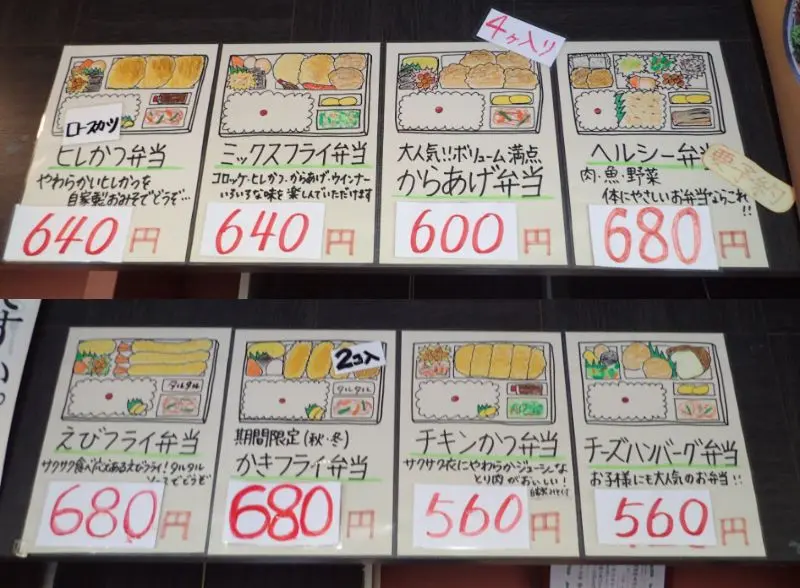 ロースカツ
ヒレかつ弁当
やわらかいヒレかつを
自家製おみそでどうぞ…
640円
ミックスフライ弁当
コロッケ・ヒレかつ・からあげ・ウインナー
いろいろな味を楽しんでいただけます
640円
4ヶ入り
大人気!!ボリューム満点
からあげ弁当
600円
ヘルシー弁
要予約
肉・魚・野菜
体にやさしいお弁当ならこれ!!
680円
タルタル
えびフライ弁当
サクサク食べごたえあるえびフライ!タルタル
ソースでどうぞ
680円
2コ入
タルタル
期間限定(秋・冬)
かきフライ弁当
680円
チキンかつ弁当
サクサク衣にやわらかジューシーな
とり肉がおいしい!
560円
チーズハンバーグ弁当
お子様にも大人気のお弁当!!
560円